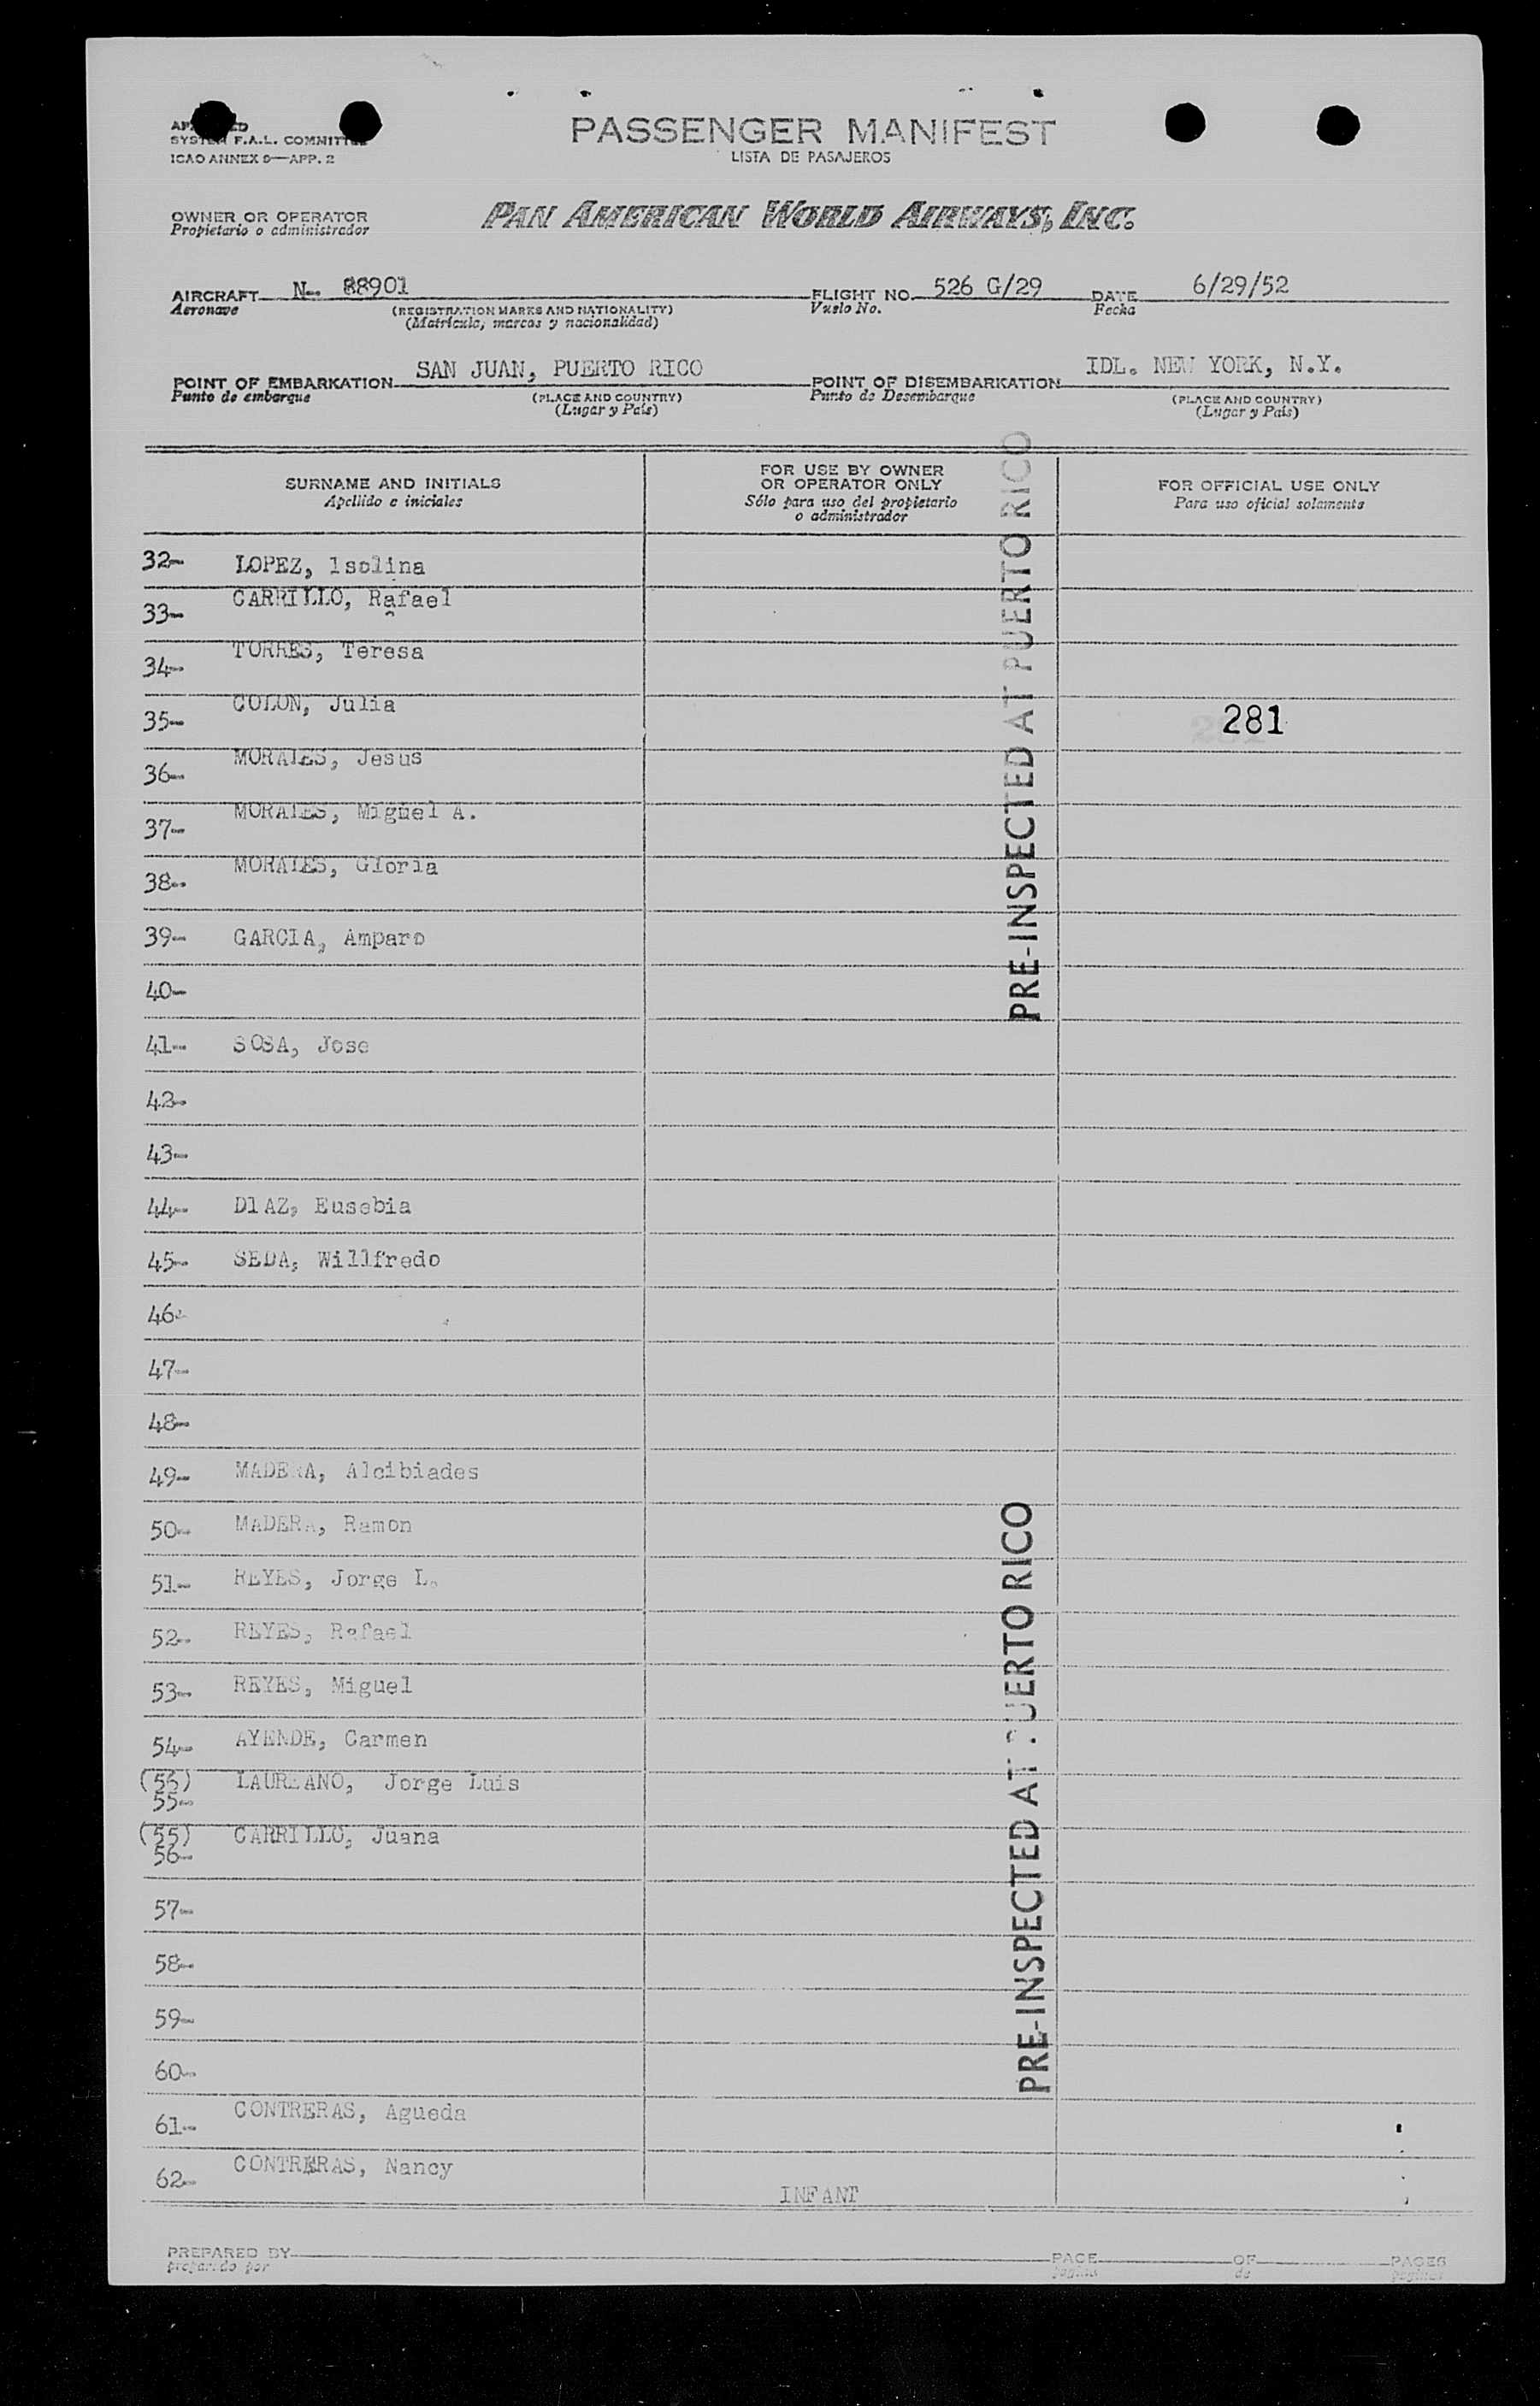 PASSENGER MANIFEST
LISTA DE PASAJEROS
SYSTEM F.A.L. COMMITTEE
ICAO ANNEX 9—APP. 2
OWNER OR OPERATOR
Propietario o administrador
PAN AMERICAN WORLD AIRWAYS, INC.
AIRCRAFT N- 88901 FLIGHT NO. 526 G/29 DATE 6/29/52
Aeronave (REGISTRATION MARKS AND NATIONALITY) Vuelo No. Fecha
(Matrícula, marcas y nacionalidad)
POINT OF EMBARKATION SAN JUAN, PUERTO RICO POINT OF DISEMBARKATION IDL. NEW YORK, N.Y.
Punto de embarque (PLACE AND COUNTRY) Punto de Desembarque (PLACE AND COUNTRY)
(Lugar y País) (Lugar y País)
SURNAME AND INITIALS
Apellido e iniciales
FOR USE BY OWNER
OR OPERATOR ONLY
Sólo para uso del propietario
o administrador
FOR OFFICIAL USE ONLY
Para uso oficial solamente
32- LOPEZ, lsolina
33- CARRILLO, Rafael
34- TORRES, Teresa
35- COLON, Julia 281
36- MORALES, Jesus
37- MORALES, Miguel A.
38- MORALES, Gloria
39- GARCIA, Amparo
40-
41- SOSA, Jose
42-
43-
44- DlAZ, Eusebia
45- SEDA, Willfredo
46-
47-
48-
49- MADERA, Alcibiades
50- MADERA, Ramon
51- REYES, Jorge L.
52- REYES, Rafael
53- REYES, Miguel
54- AYENDE, Carmen
(56) LAUREANO, Jorge Luis
55-
(55) CARRILLO, Juana
56-
57-
58-
59-
60-
61- CONTRERAS, Agueda
62- CONTRERAS, Nancy INFANT
PRE-INSPECTED AT PUERTO RICO
PRE-INSPECTED AT PUERTO RICO
PREPARED BY PAGE OF PAGES
preparado por página de páginas